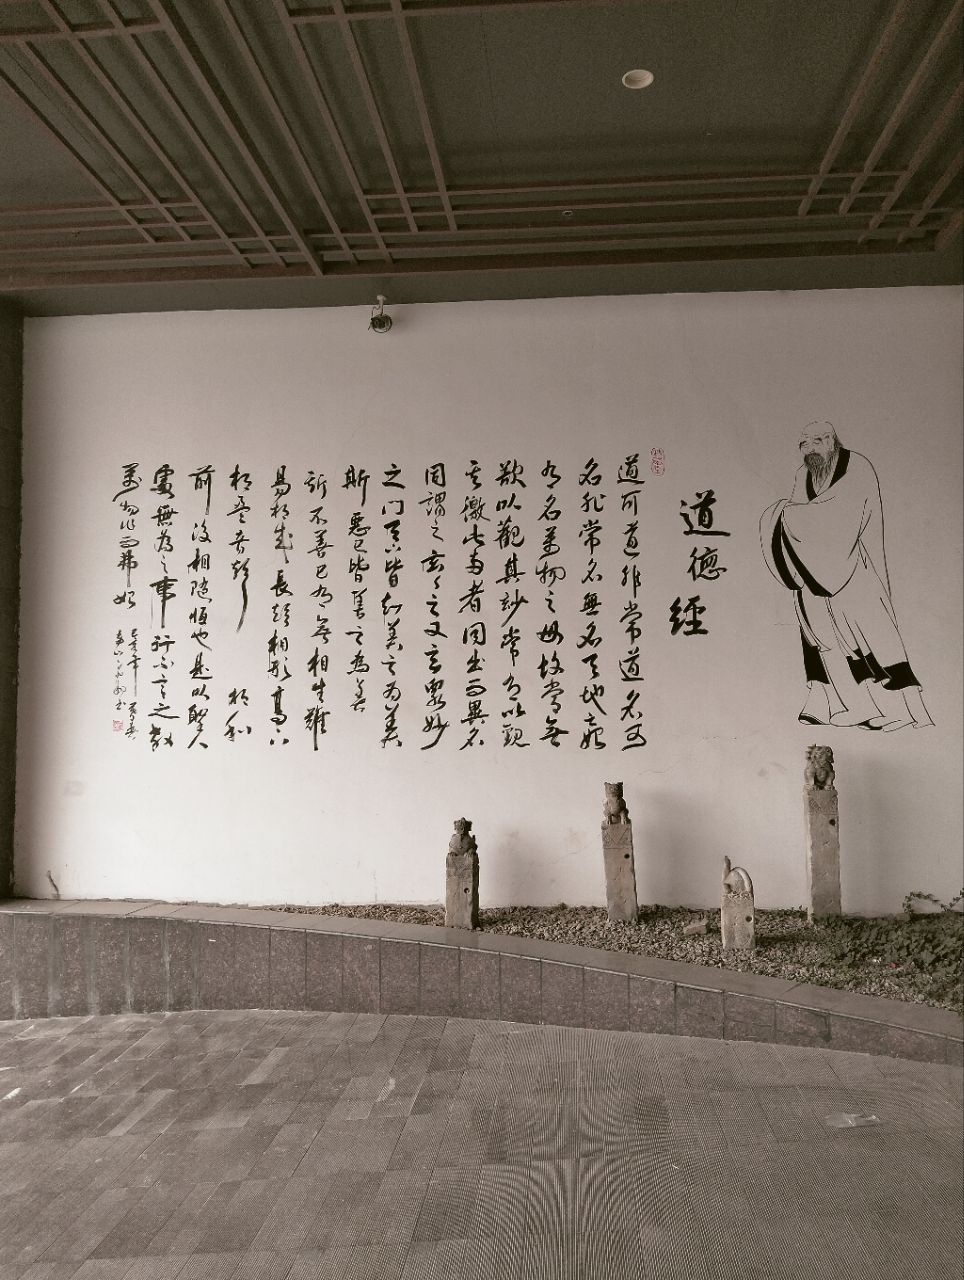 道德經
道可道非常道名可
名非常名無名天地之始
有名萬物之母故常無
欲以觀其妙常有以觀
其徼此兩者同出而異名
同謂之玄玄之又玄眾妙
之門天下皆知美之為美
斯惡已皆善之為善
斯不善已有無相生難
易相成長短相形高下
相盈音聲相和
前後相隨恆也是以聖人
處無為之事行不言之教
萬物作而弗始